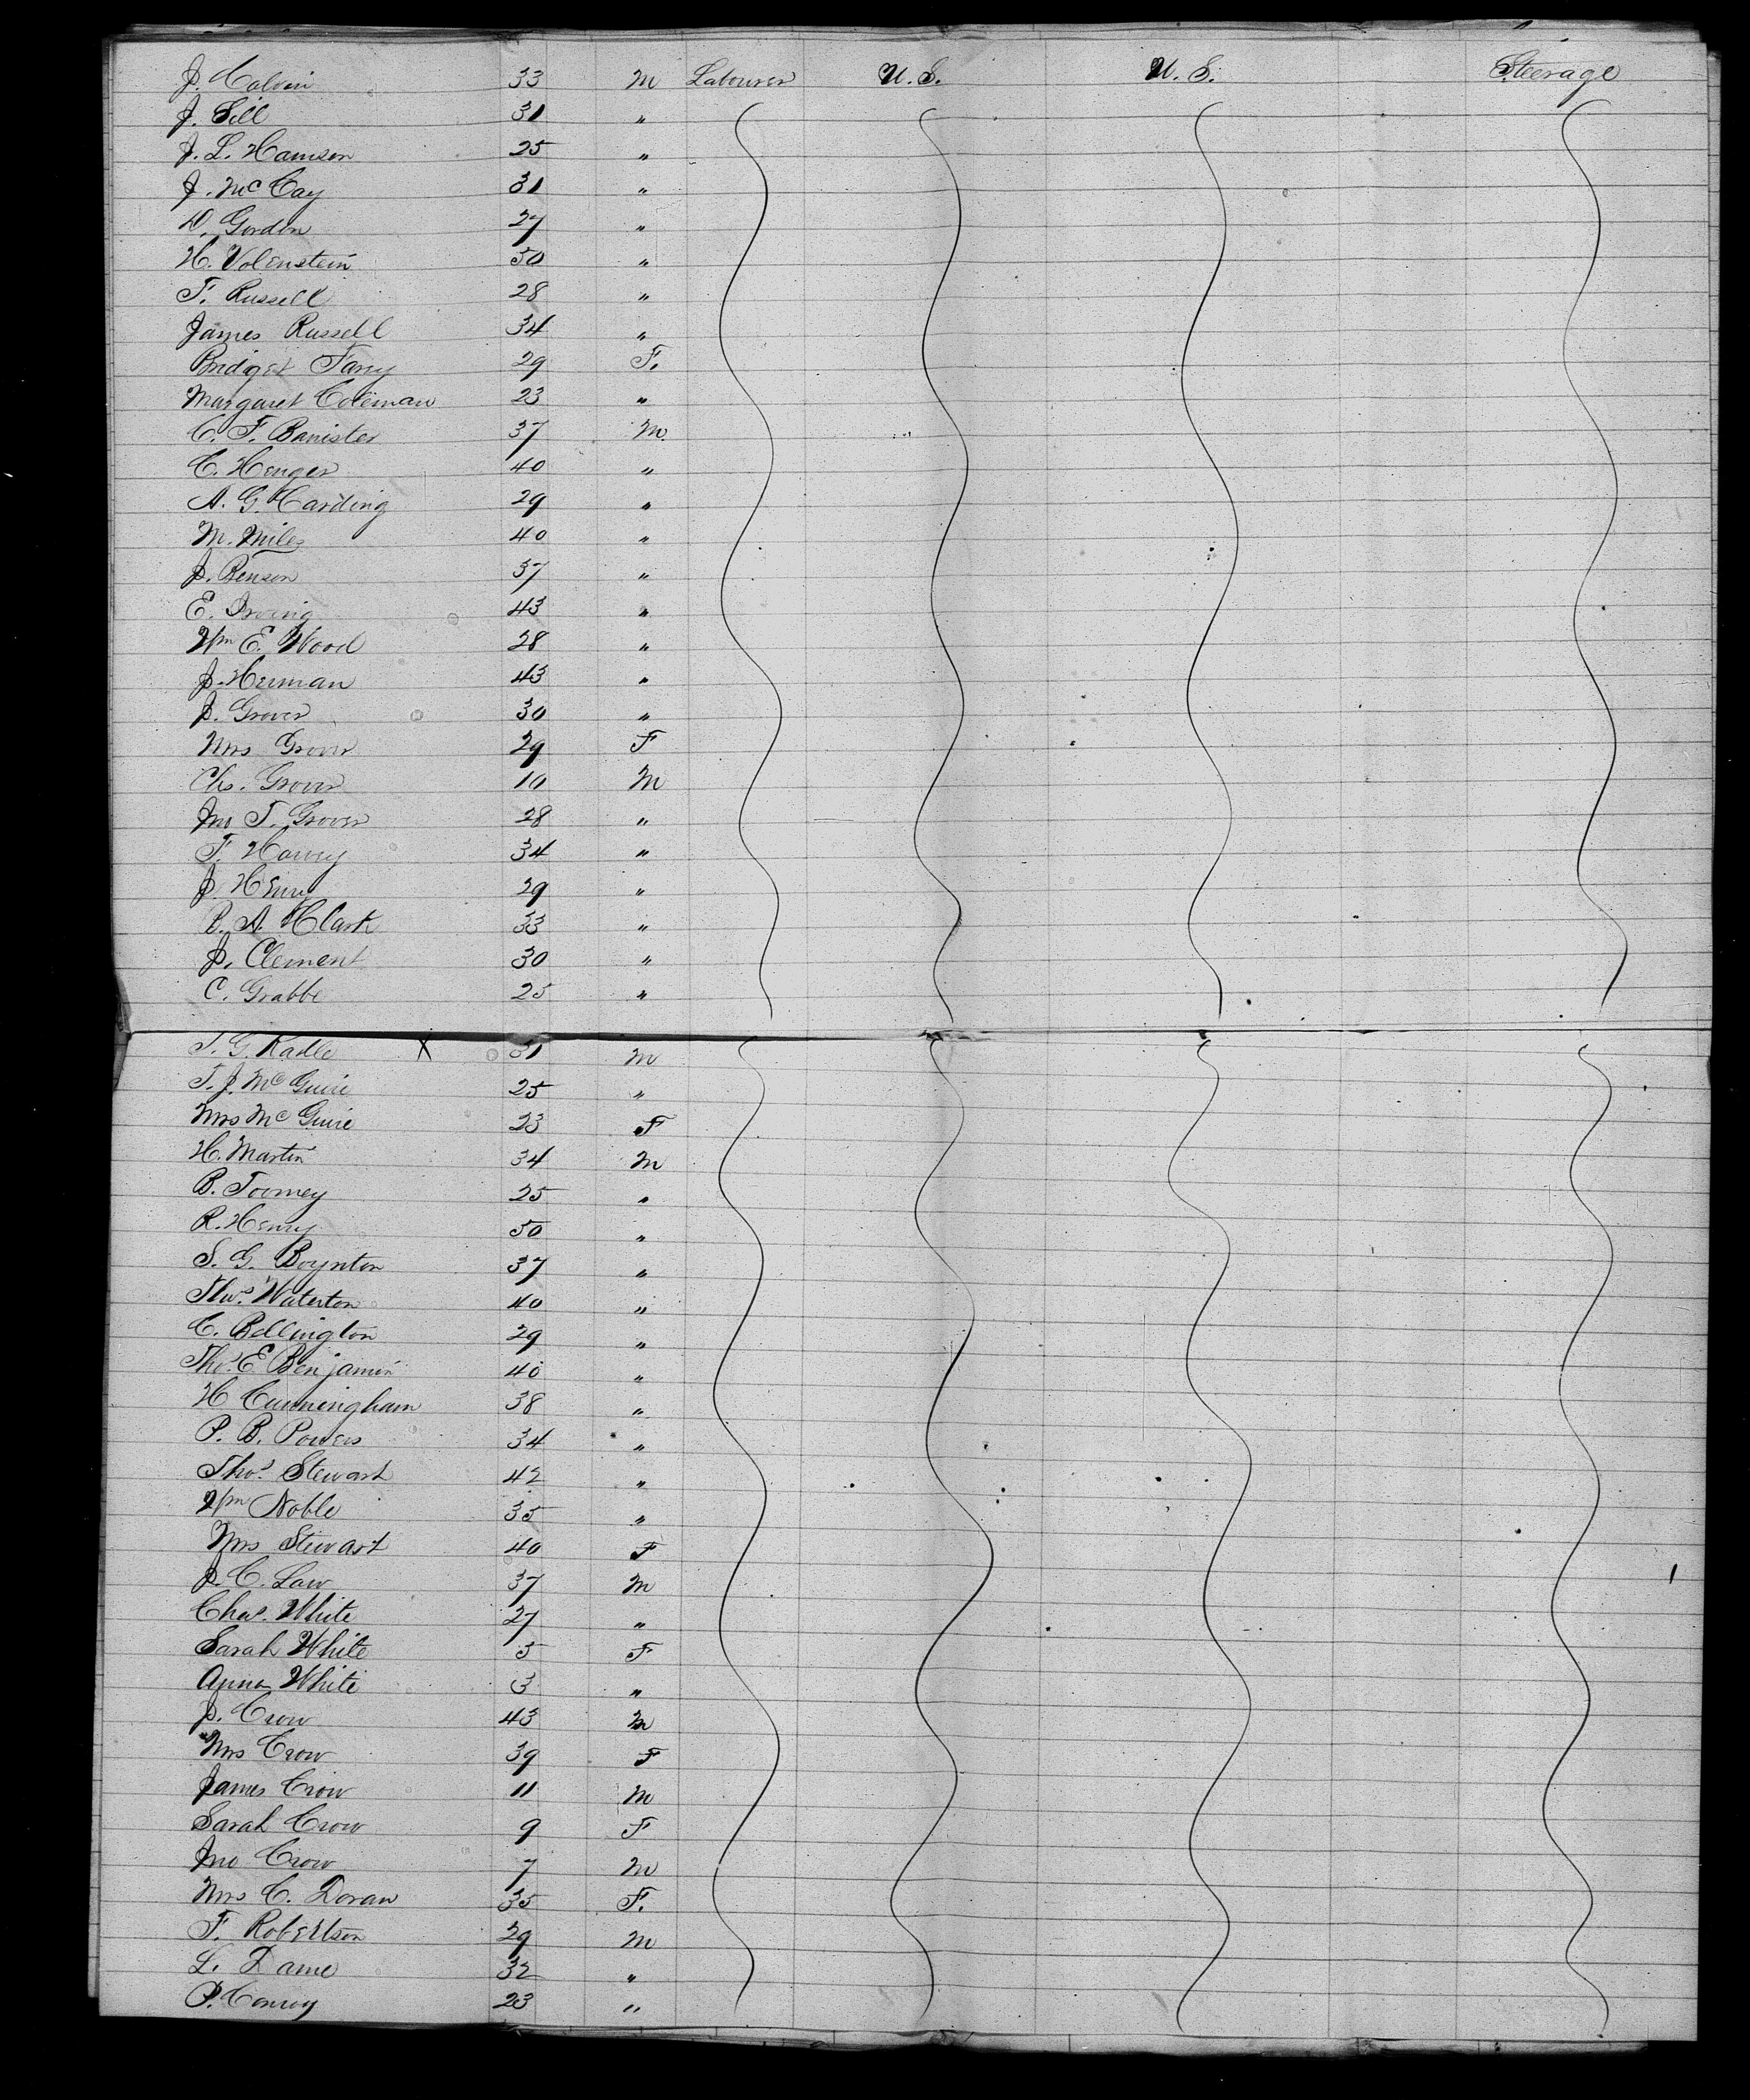 J. Colvin 33 M Labourer U. S. U. S. Steerage
J. Gill 31 "
J. L. Hamson 25 "
J. McCay 31 "
D. Gordon 27 "
H. Volenstein 50 "
T. Russell 28 "
James Russell 34 "
Bridget Fany 29 F.
Margaret Coleman 23 "
C. F. Banister 37 M.
C. Henger 40 "
A. G. Carding 29 "
M. Miles 40 "
J. Benson 37 "
E. Irving 43 "
Wm E. Wood 28 "
J. Herman 43 "
J. Grover 30 "
Mrs Grover 29 F
Ch. Grover 10 M
Jno T. Grover 28 "
F. Harvey 34 "
J. Henry 29 "
B. A. Clark 33 "
J. Clement 30 "
C. Grabbe 25 "
T. G. Kadle X 31 M
T. J. McGuire 25 "
Mrs McGuire 23 F
H. Martin 34 M
B. Toomey 25 "
R. Henry 50 "
S. G. Boynton 37 "
Thos. Waterton 40 "
C. Bellington 29 "
Thos. E Benjamin 40 "
H Cunningham 38 "
P. B. Powers 34 "
Thos. Stewart 42 "
Wm Noble 35 "
Mrs Stewart 40 F
J. C. Law 37 M
Chas. White 27 "
Sarah White 5 F
Anna White 3 "
J. Crow 43 M
Mrs Crow 39 F
James Crow 11 M
Sarah Crow 9 F
Jno Crow 7 M
Mrs C. Doran 35 F.
F. Robertson 29 M
L. Dame 32 "
P. Conroy 23 "